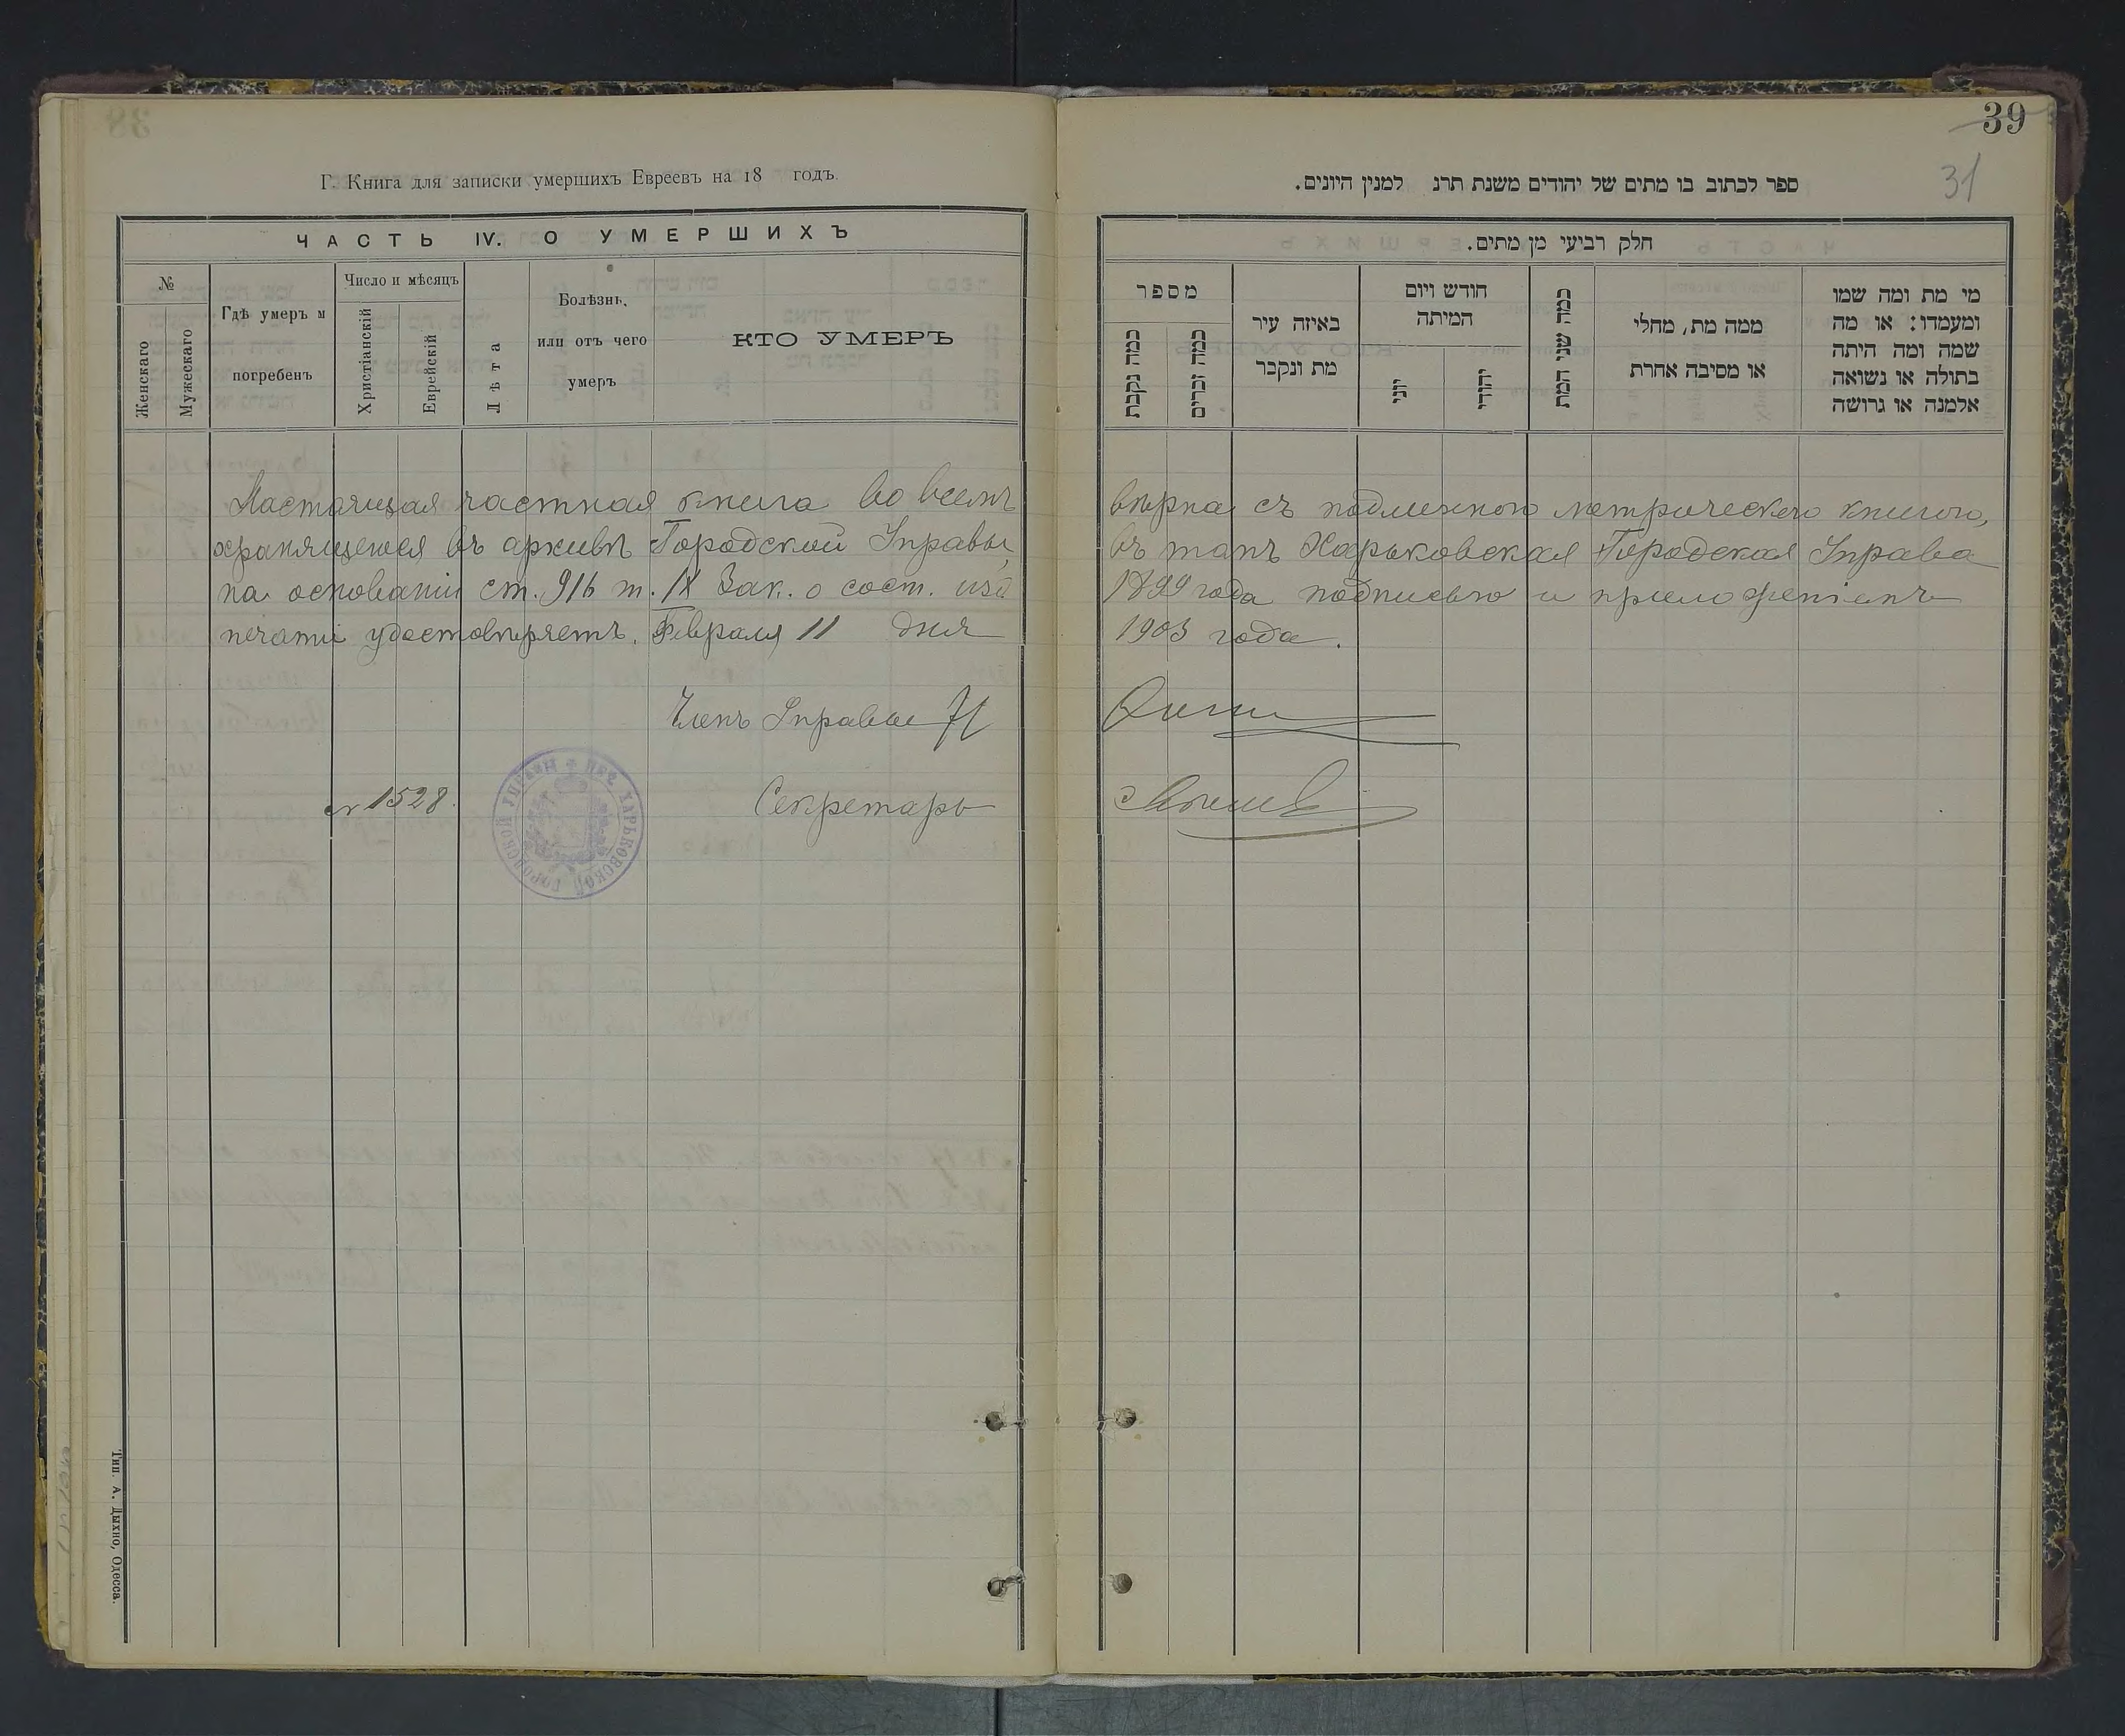 39
31
Г. Книга для записки умершихъ Евреевъ на 18 годъ.
ЧАСТЬ IV. О УМЕРШИХЪ
№
Женскаго
Мужескаго
Гдѣ умеръ и
погребенъ
Число и мѣсяцъ
Христіанскій
Еврейскій
Лѣта
Болѣзнь,
или отъ чего
умеръ
КТО УМЕРЪ
ספר לכתוב בו מתים של יהודים משנת תרנ למנין היונים.
חלק רביעי מן מתים.
מספר
כמה נקבת
כמה זכרים
באיזה עיר
מת ונקבר
חודש ויום
המיתה
יוני
יהודי
כמה שני המת
ממה מת, מחלי
או מסיבה אחרת
מי מת ומה שמו
ומעמדו: או מה
שמה ומה היתה
בתולה או נשואה
אלמנה או גרושה
Настоящая частная книга во всемъ вѣрна съ подлинною метрическою книгою,
хранящеюся въ архивѣ Городской Управы, въ томъ Харьковская Городская Управа
на основаніи ст. 916 т. IX Зак. о сост. изд 1899 года подписью и приложеніемъ
печати удостовѣряетъ. Февраля 11 дня 1903 года.
Членъ Управы
№ 1528.
Секретарь
ХАРЬКОВСКОЙ ГОРОДСКОЙ УПРАВЫ
Тип. А. Дыхно, Одесса.